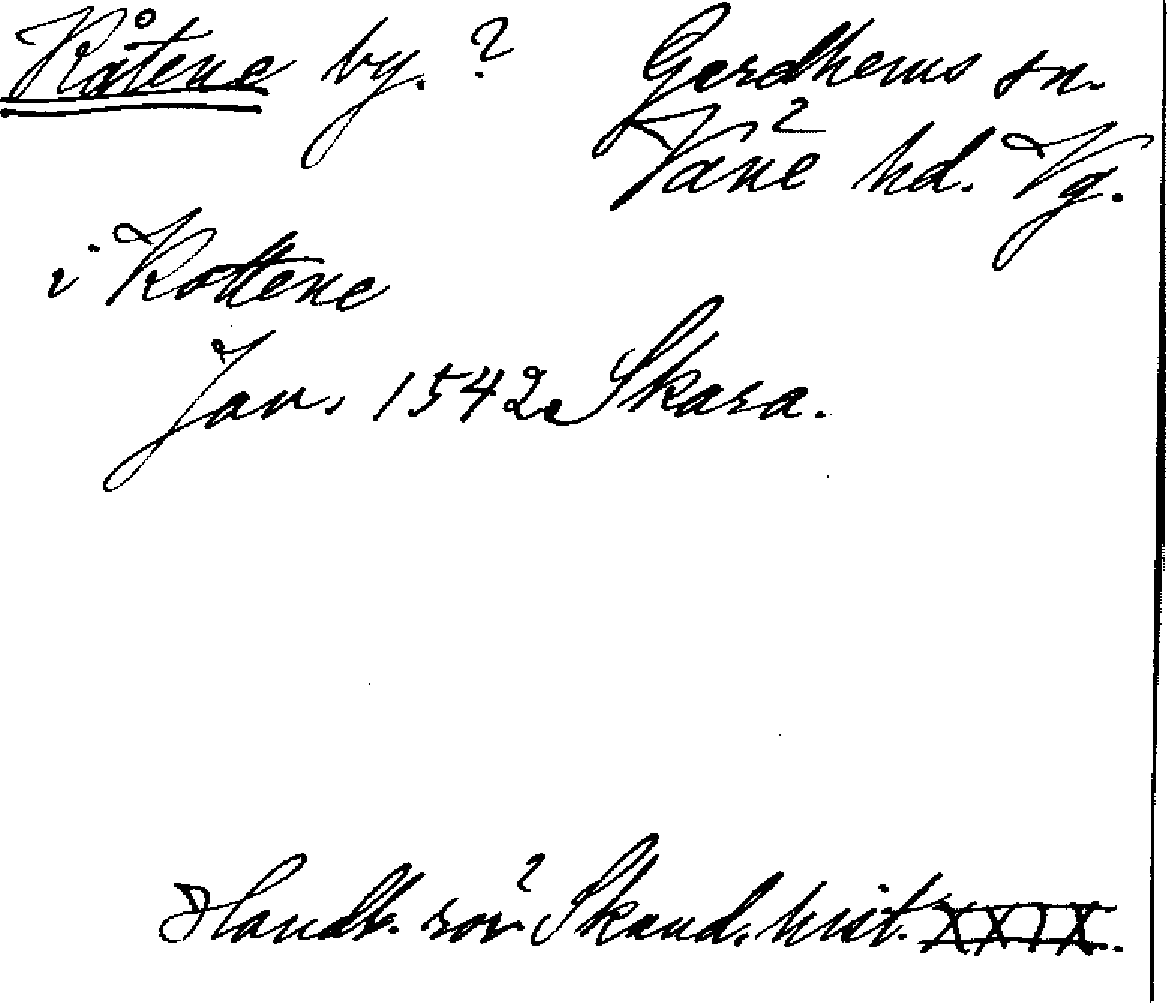 Råtene by. ? Gerdhems sn.
Väne hd. Vg.
i Rottene
Jan. 1542. Skara.
Handl. rör. Skand. hist. XXIX.